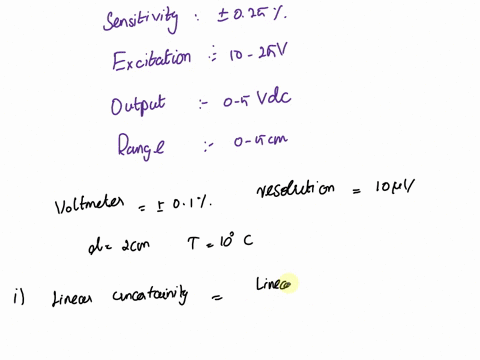 Sensitivity : ± 0.25 %.
Excitation :- 10 - 25V
Output :- 0-5 Vdc
Range :- 0-5cm
Voltmeter = ± 0.1 %. resolution = 10μV
d = 2cm T = 10° C
i) Linear uncertainity = Linea